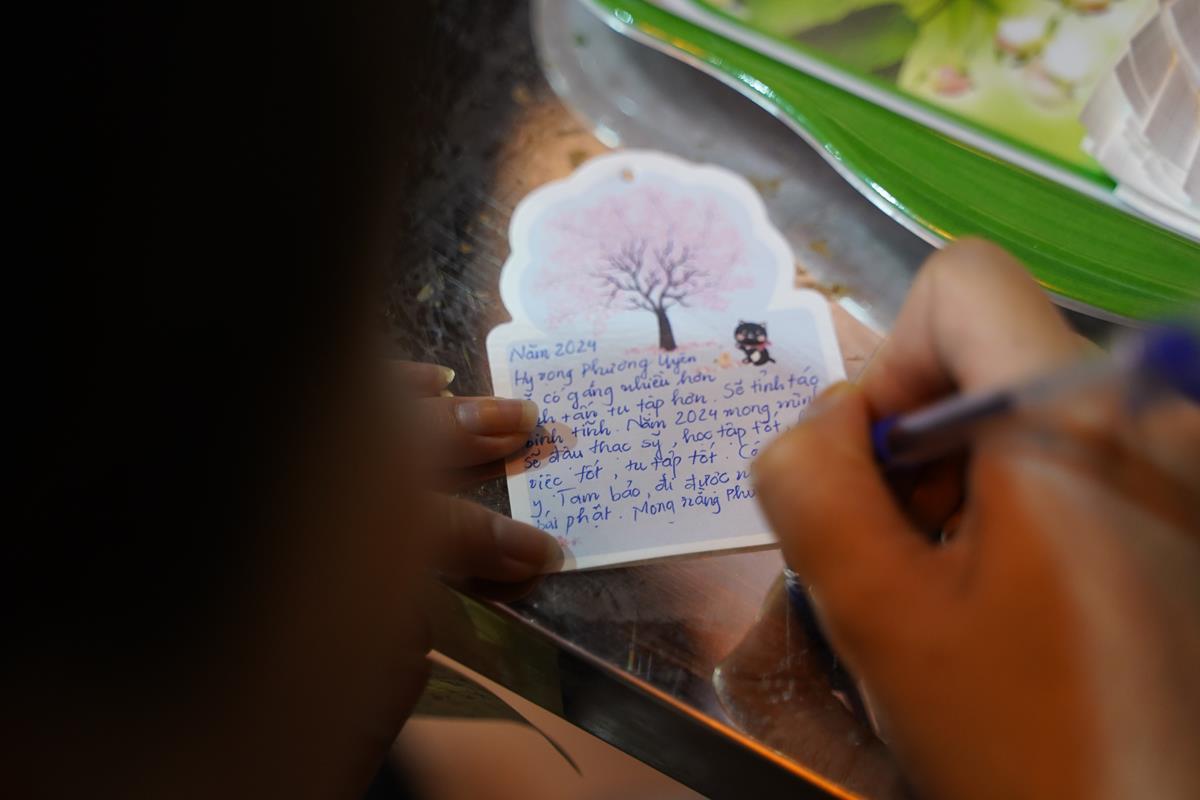 Năm 2024
Hy vọng Phương Uyên
cố gắng nhiều hơn
tấn tu tập hơn. Sẽ tỉnh táo
bình tĩnh. Năm 2024 mong mình
sẽ đậu thạc sỹ, học tập tốt,
việc tốt, tu tập tốt. Có
ý, Tam bảo, đi được
bái phật. Mong rằng